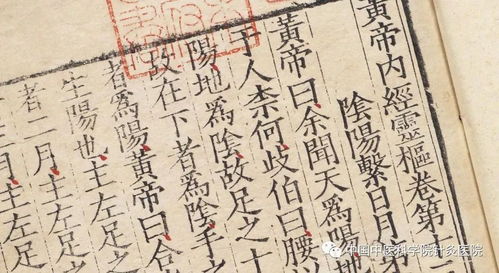 黃帝內經靈樞卷第
陰陽繫日月
黃帝曰余聞天爲陽地
于人柰何歧伯曰腰
陽地爲陰故足之十
故在下者爲陰手之
者爲陽黃帝曰合
生陽也主左足
者二月主左足之
月主左足
中国中医科学院针灸医院